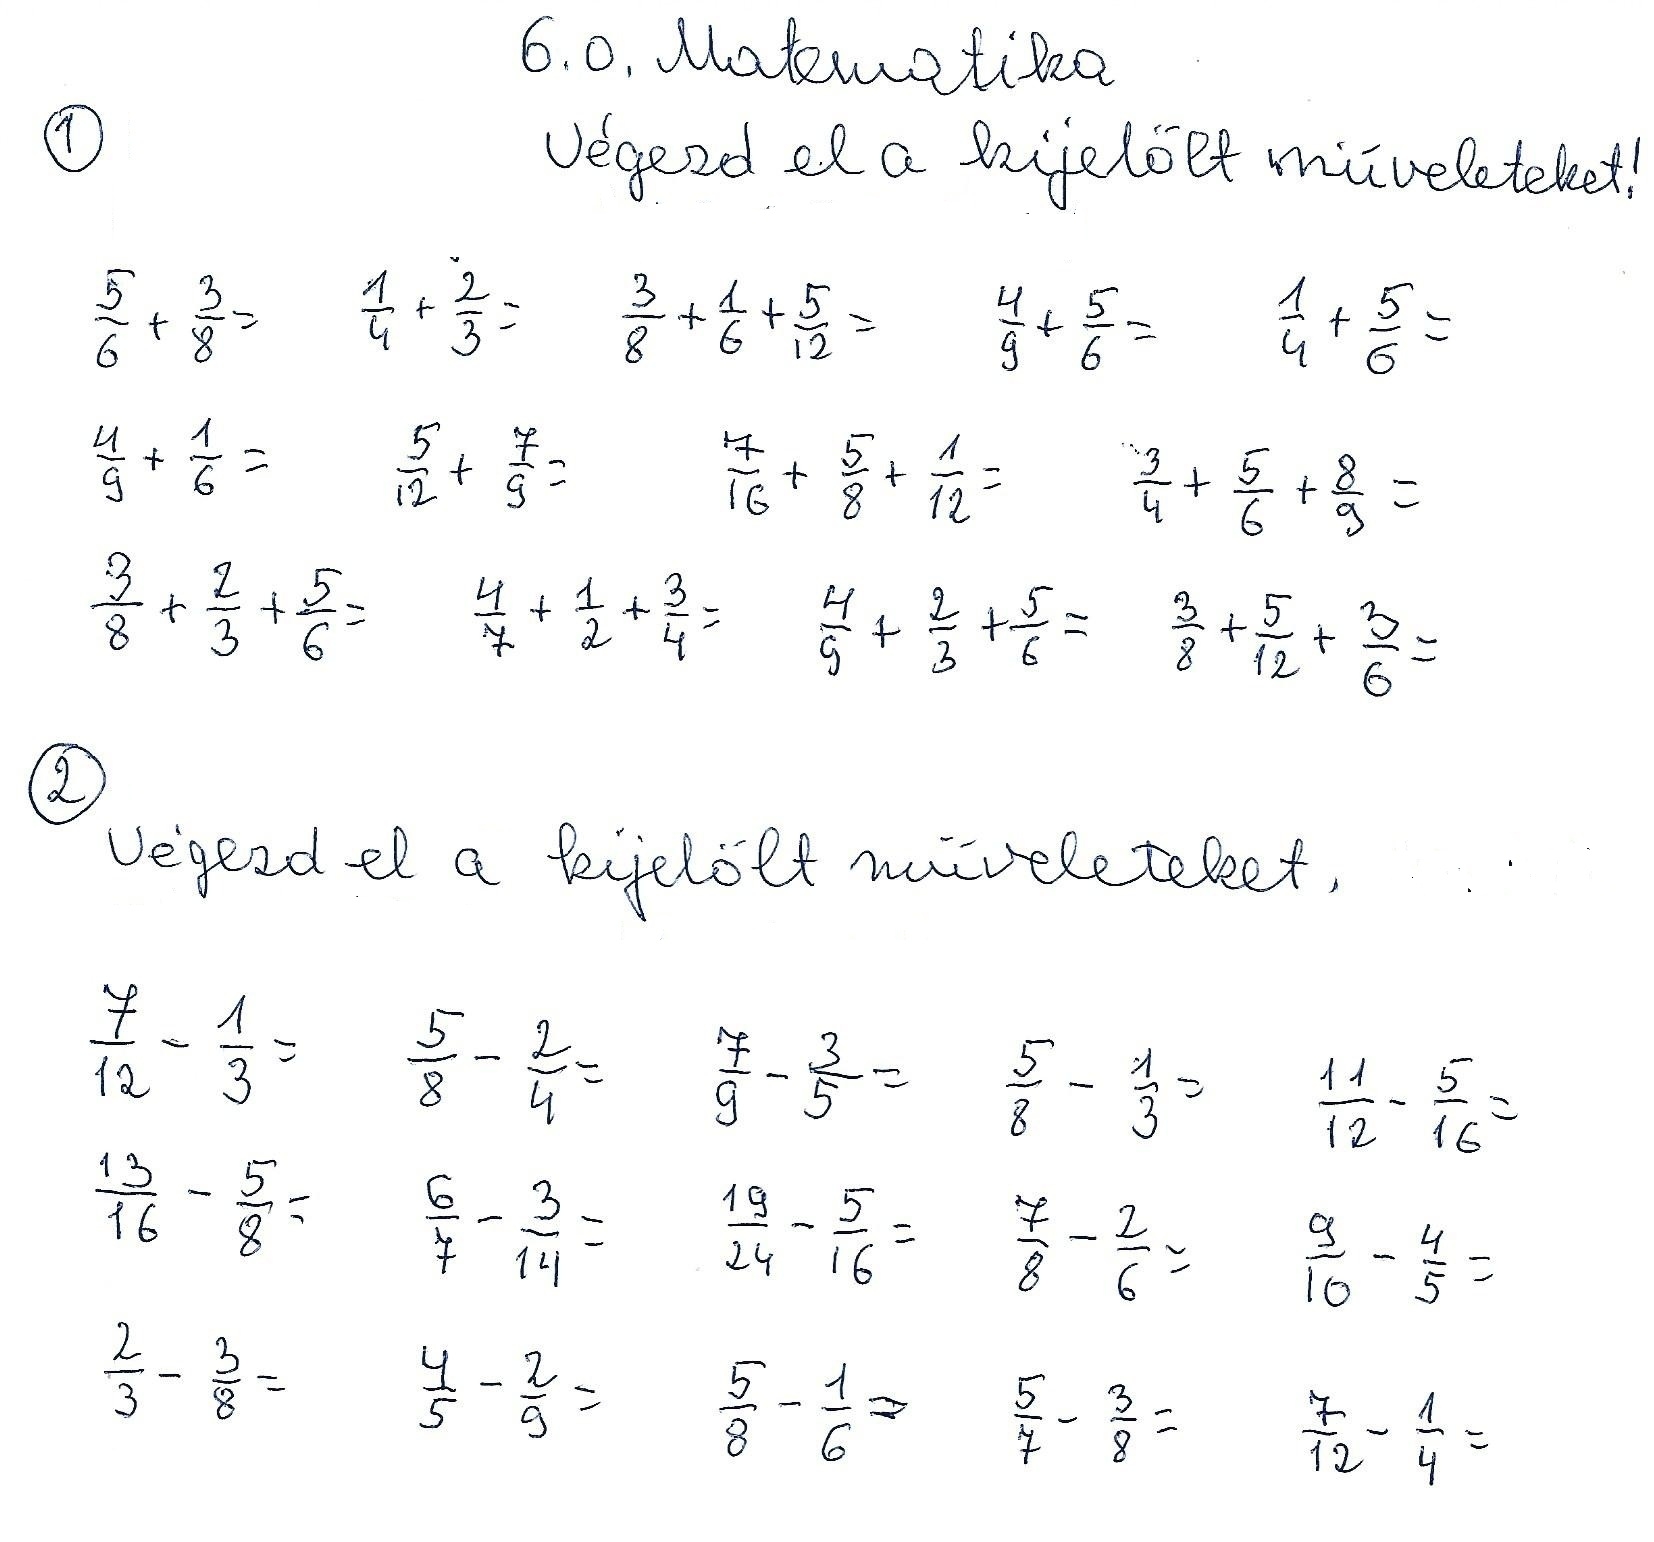 6.o. Matematika
①
Végezd el a kijelölt műveleteket!
5/6 + 3/8 = 1/4 + 2/3 = 3/8 + 1/6 + 5/12 = 4/9 + 5/6 = 1/4 + 5/6 =
4/9 + 1/6 = 5/12 + 7/9 = 7/16 + 5/8 + 1/12 = 3/4 + 5/6 + 8/9 =
3/8 + 2/3 + 5/6 = 4/7 + 1/2 + 3/4 = 4/9 + 2/3 + 5/6 = 3/8 + 5/12 + 3/6 =
②
Végezd el a kijelölt műveleteket.
7/12 - 1/3 = 5/8 - 2/4 = 7/9 - 3/5 = 5/8 - 1/3 = 11/12 - 5/16 =
13/16 - 5/8 = 6/7 - 3/14 = 19/24 - 5/16 = 7/8 - 2/6 = 9/10 - 4/5 =
2/3 - 3/8 = 4/5 - 2/9 = 5/8 - 1/6 = 5/7 - 3/8 = 7/12 - 1/4 =